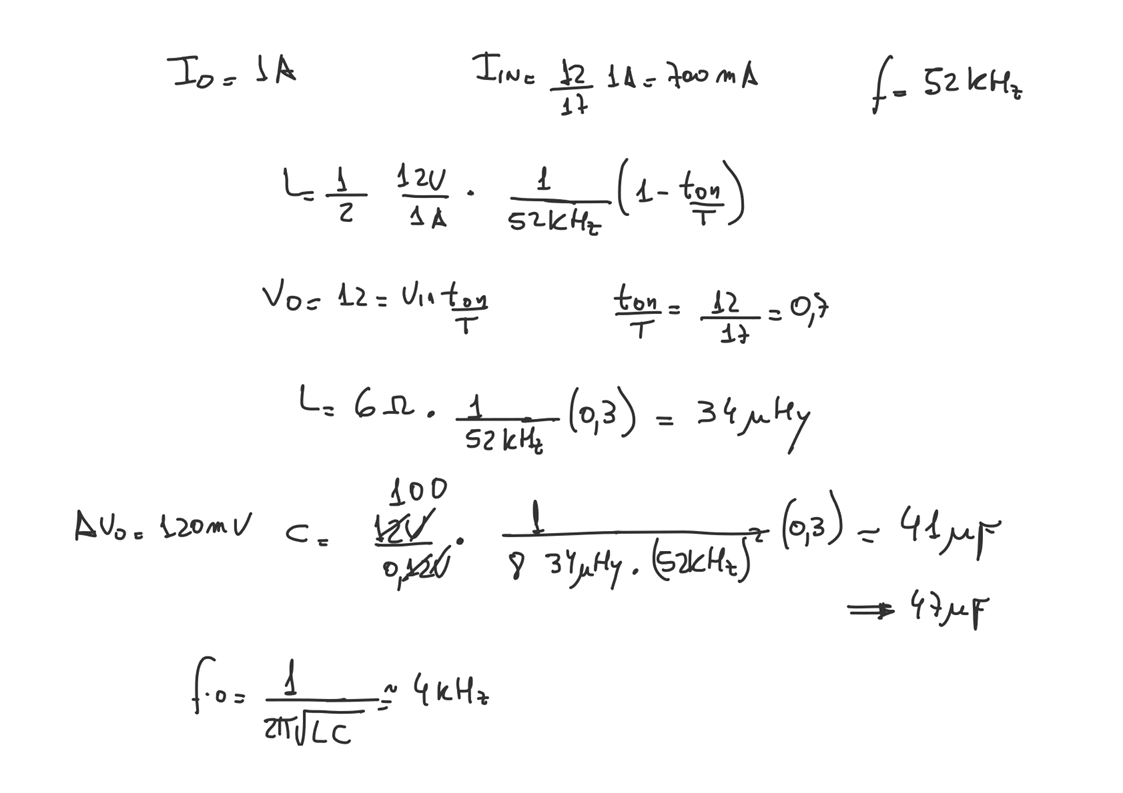 I₀ = 1A   I_IN = 12/17 1A = 700 mA   f = 52 kHz
L = 1/2 12V/1A · 1/52kHz (1 - ton/T)
V₀ = 12 = Vin ton/T   ton/T = 12/17 = 0,7
L = 6 Ω · 1/52 kHz (0,3) = 34 μHy
ΔV₀ = 120 mV   C = 100 12V/0,12V · 1/8 34μHy · (52kHz)² (0,3) = 41 μF
⇒ 47 μF
f·o = 1/2π√LC ≃ 4 kHz